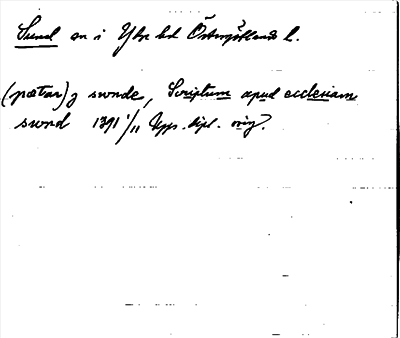 Sund sn i Ydre hd Östergötlands l.
(pætar) j swnde, Scriptum apud ecclesiam
swnd 1391 1/11 Upps. dipl. orig.